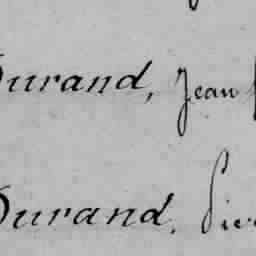 Durand, Jean
Durand,